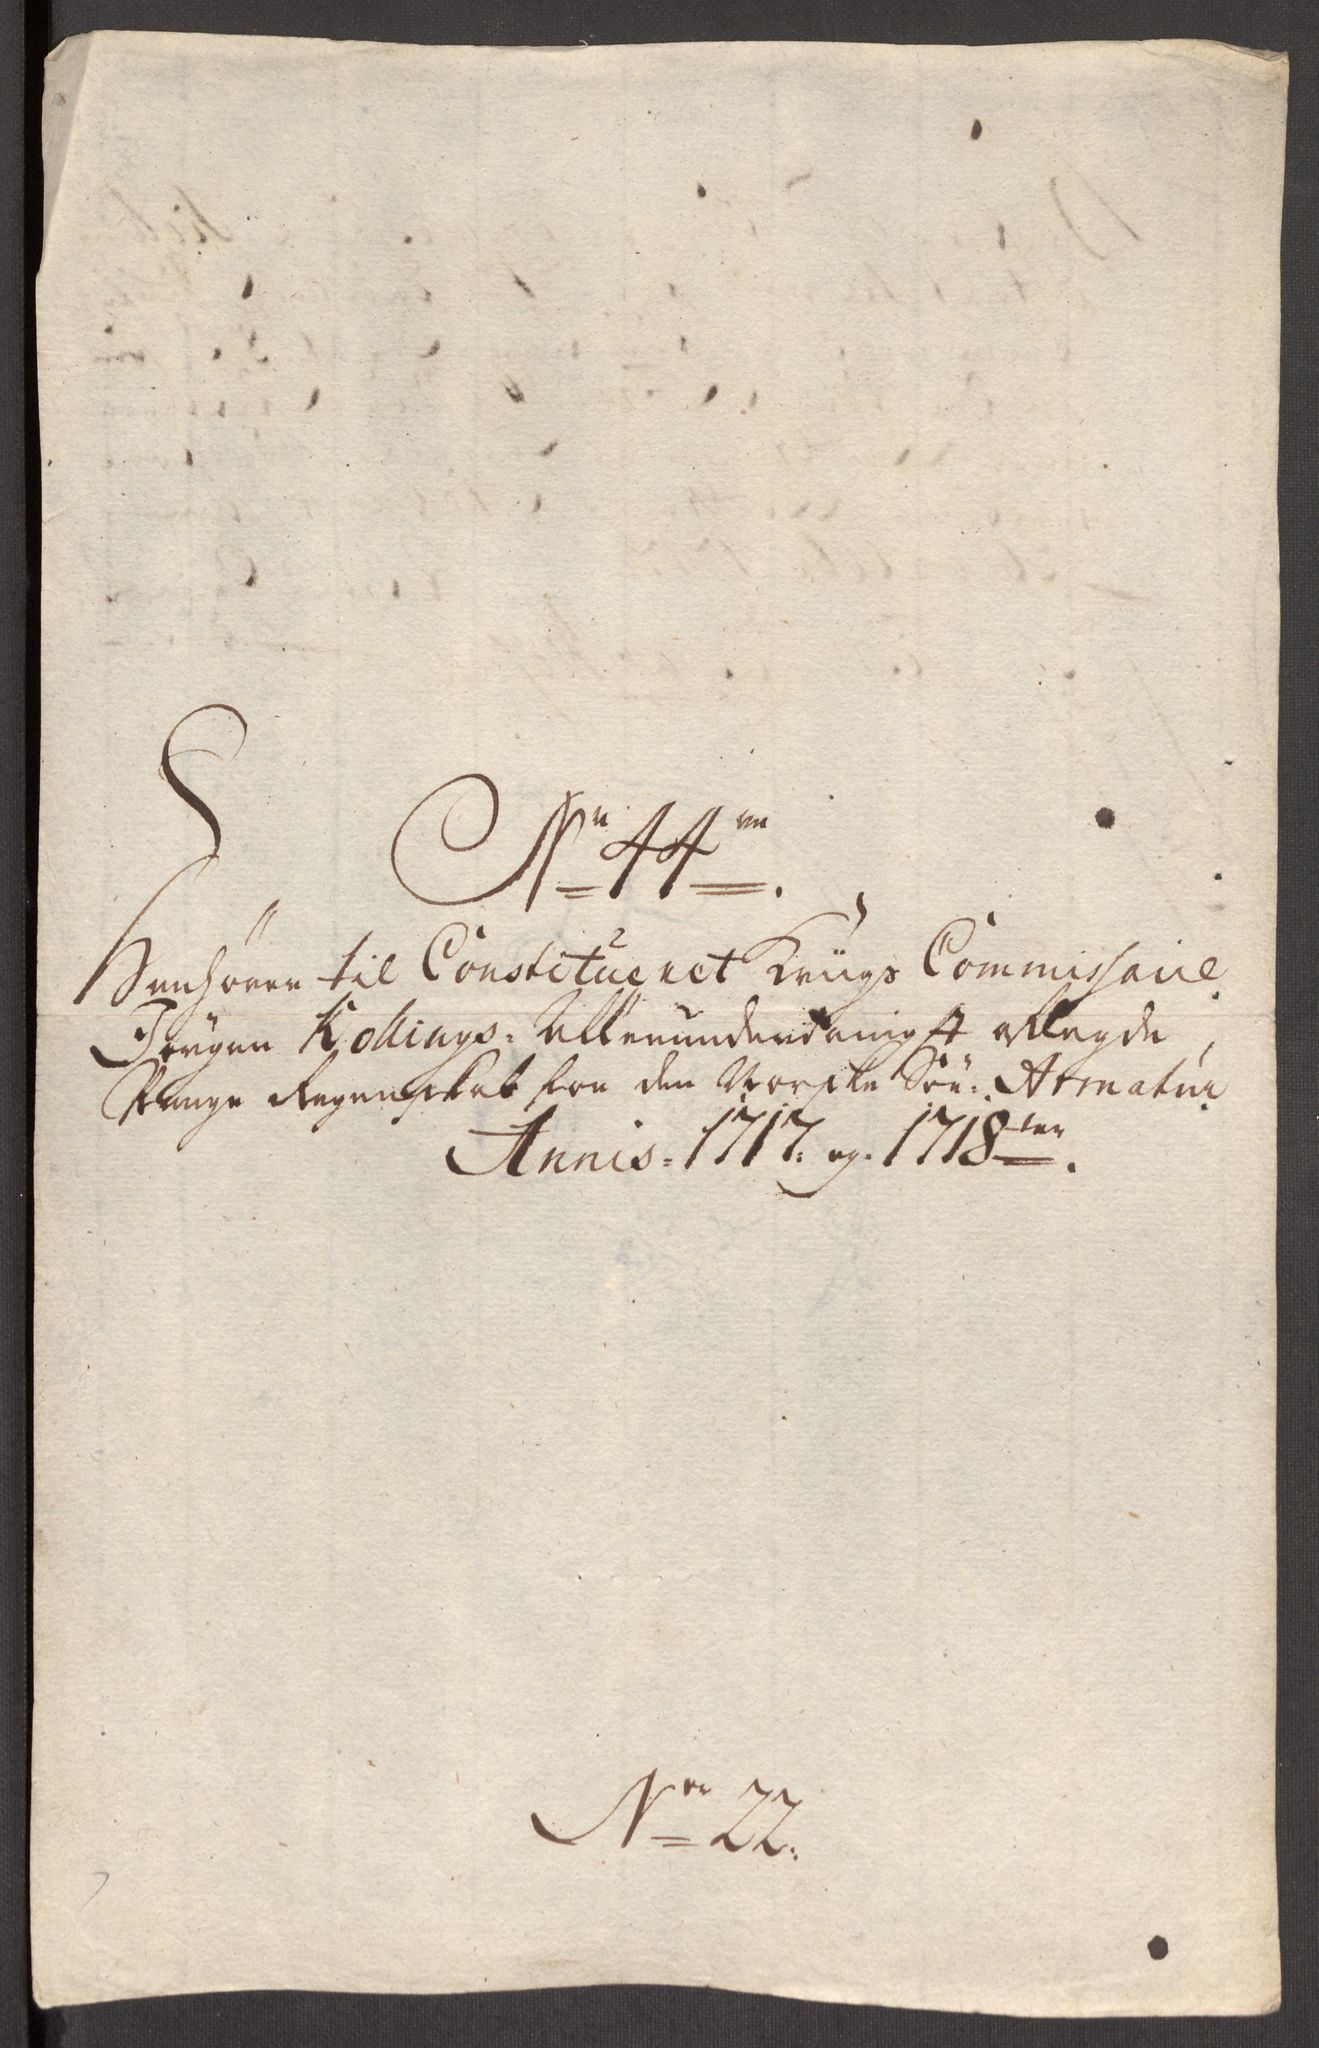 No 44
Henhörer til Constitueret Kriigs Commissaire
Jörgen Kollings: Allerunderdanigst aflegde
Penge Regenskab for den Norske Söe: Armatur
Annis: 1717: og. 1718
No 22: